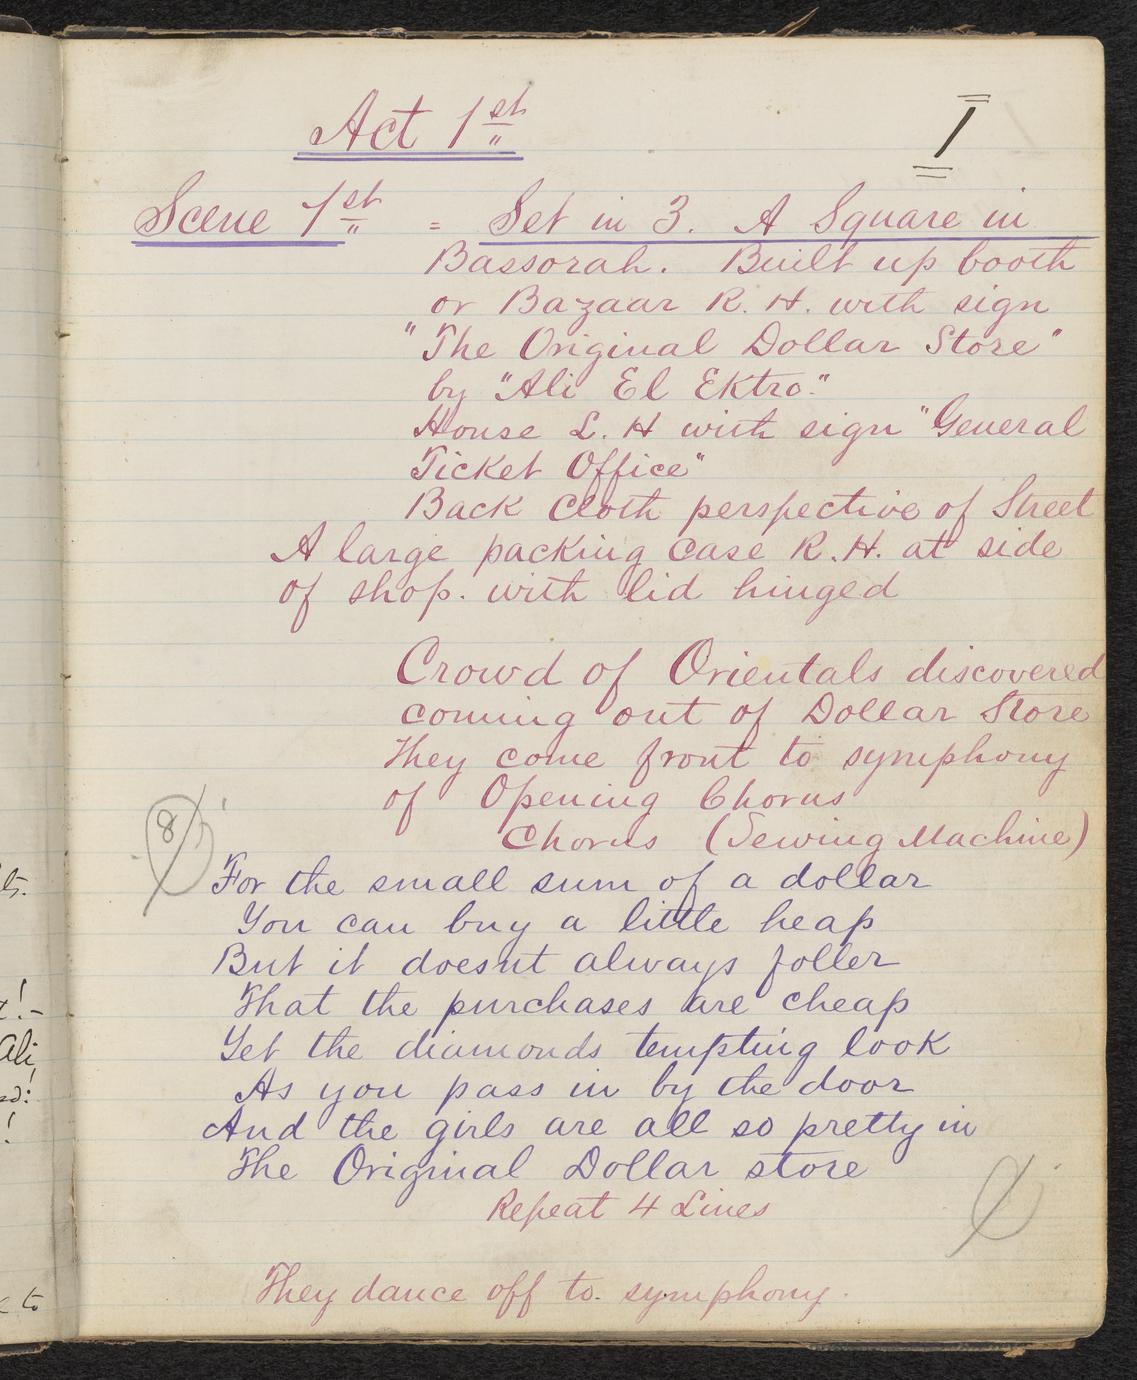 Act 1st
1
Scene 1st = Set in 3. A Square in
Bassorah. Built up booth
or Bazaar R. H. with sign
"The Original Dollar Store"
by "Ali El Ektro."
House L. H with sign "General
Ticket Office"
Back Cloth perspective of Street
A large packing Case R. H. at side
of shop. with lid hinged
Crowd of Orientals discovered
coming out of Dollar Store
They come front to symphony
of Opening Chorus
Chorus (Sewing Machine)
8
For the small sum of a dollar
You can buy a little heap
But it doesnt always foller
That the purchases are cheap
Yet the diamonds tempting look
As you pass in by the door
And the girls are all so pretty in
The Original Dollar store
Repeat 4 Lines
They dance off to. symphony.
ts.
!-
Ali,
!
to